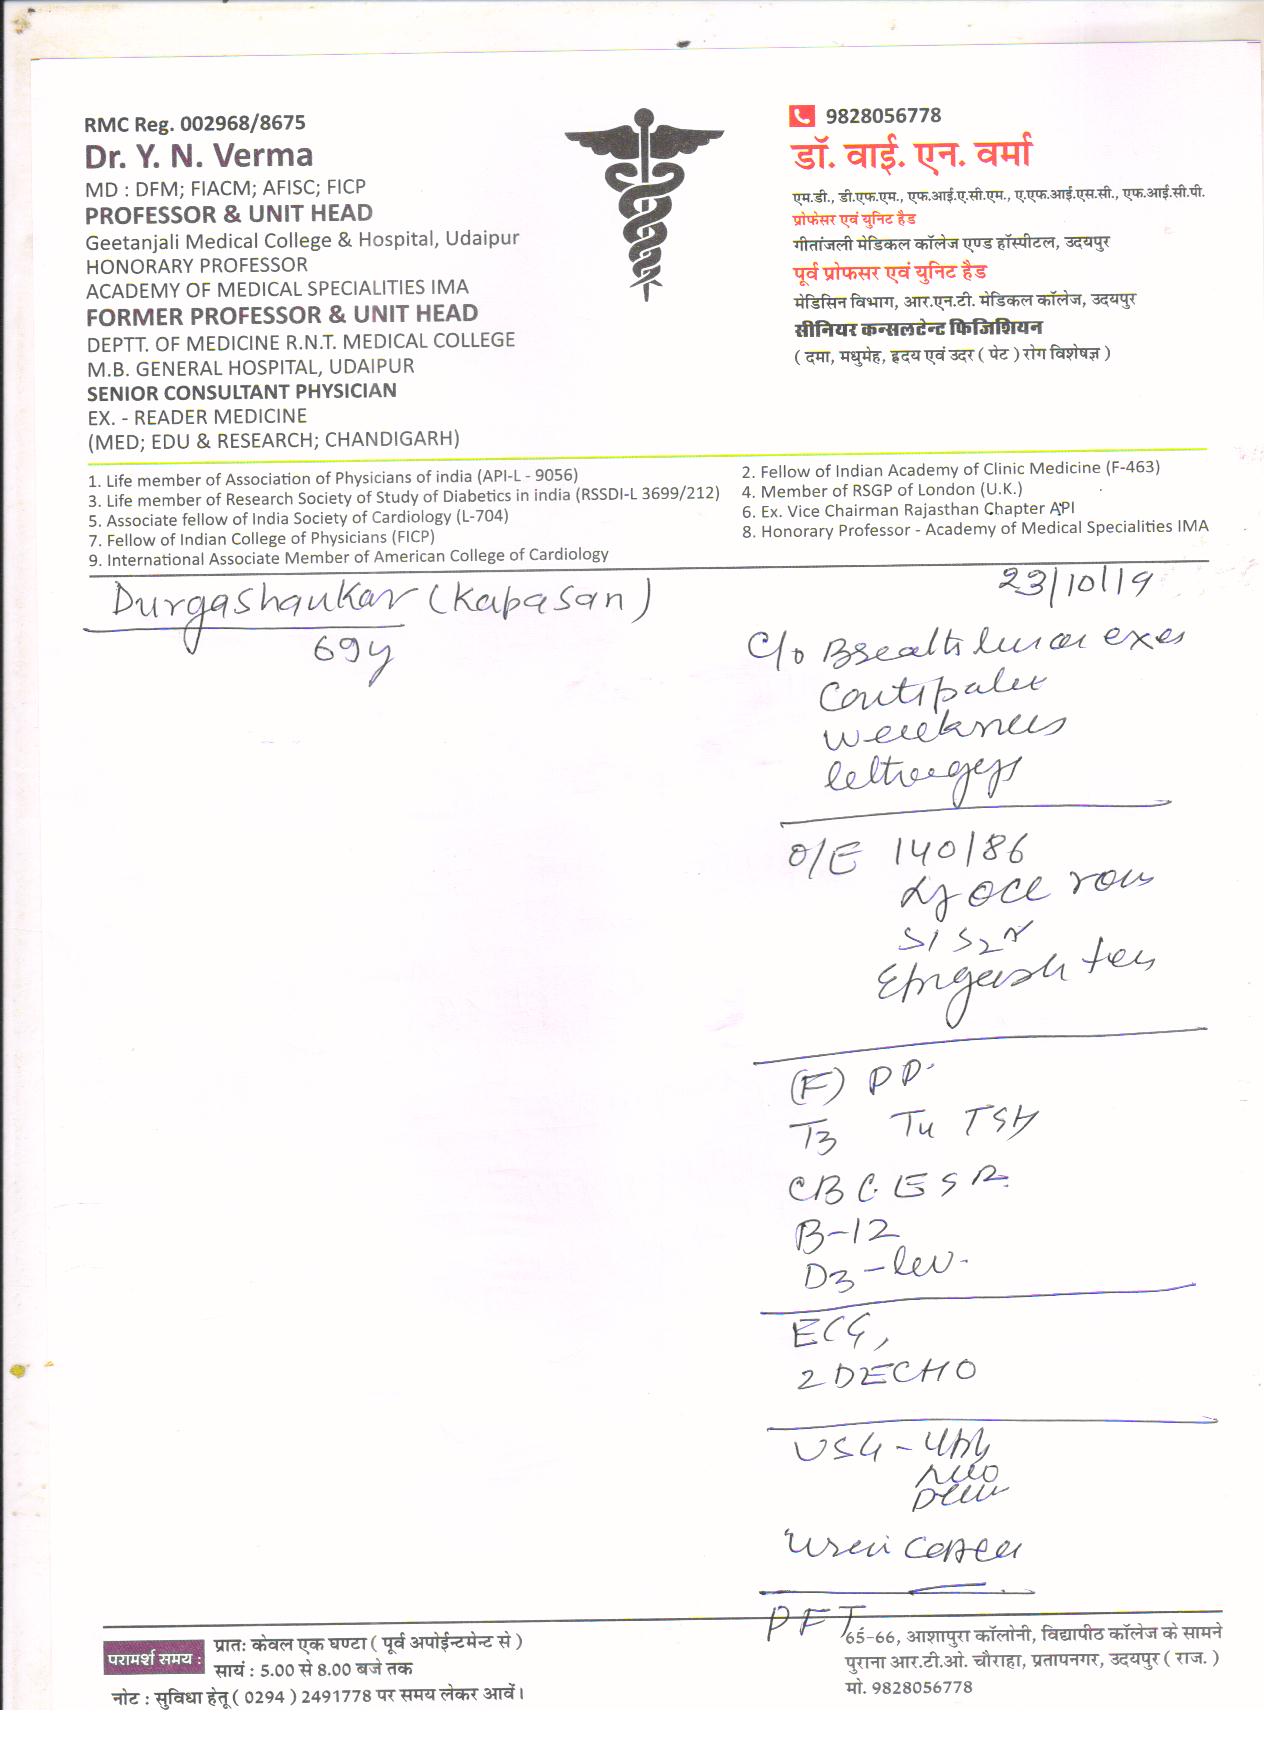 RMC Reg. 002968/8675
Dr. Y. N. Verma
MD : DFM; FIACM; AFISC; FICP
PROFESSOR & UNIT HEAD
Geetanjali Medical College & Hospital, Udaipur
HONORARY PROFESSOR
ACADEMY OF MEDICAL SPECIALITIES IMA
FORMER PROFESSOR & UNIT HEAD
DEPTT. OF MEDICINE R.N.T. MEDICAL COLLEGE
M.B. GENERAL HOSPITAL, UDAIPUR
SENIOR CONSULTANT PHYSICIAN
EX. - READER MEDICINE
(MED; EDU & RESEARCH; CHANDIGARH)
9828056778
डॉ. वाई. एन. वर्मा
एम.डी., डी.एफ.एम., एफ.आई.ए.सी.एम., ए.एफ.आई.एस.सी., एफ.आई.सी.पी.
प्रोफेसर एवं युनिट हैड
गीतांजली मेडिकल कॉलेज एण्ड हॉस्पीटल, उदयपुर
पूर्व प्रोफसर एवं युनिट हैड
मेडिसिन विभाग, आर.एन.टी. मेडिकल कॉलेज, उदयपुर
सीनियर कन्सलटेन्ट फिजिशियन
( दमा, मधुमेह, हृदय एवं उदर ( पेट ) रोग विशेषज्ञ )
1. Life member of Association of Physicians of india (API-L - 9056)
2. Fellow of Indian Academy of Clinic Medicine (F-463)
3. Life member of Research Society of Study of Diabetics in india (RSSDI-L 3699/212)
4. Member of RSGP of London (U.K.)
5. Associate fellow of India Society of Cardiology (L-704)
6. Ex. Vice Chairman Rajasthan Chapter API
7. Fellow of Indian College of Physicians (FICP)
8. Honorary Professor - Academy of Medical Specialities IMA
9. International Associate Member of American College of Cardiology
Durgashankar (Kapasan)
23/10/19
69y
C/o
weakness
O/E 140/86
S1 S2 N
(F) PP.
T3 T4 TSH
CBC ESR
B-12
D3-lev.
ECG,
2DECHO
USG -
PFT
परामर्श समय :
प्रातः केवल एक घण्टा ( पूर्व अपोईन्टमेन्ट से )
सायं : 5.00 से 8.00 बजे तक
नोट : सुविधा हेतू ( 0294 ) 2491778 पर समय लेकर आवें।
65-66, आशापुरा कॉलोनी, विद्यापीठ कॉलेज के सामने
पुराना आर.टी.ओ. चौराहा, प्रतापनगर, उदयपुर ( राज. )
मो. 9828056778